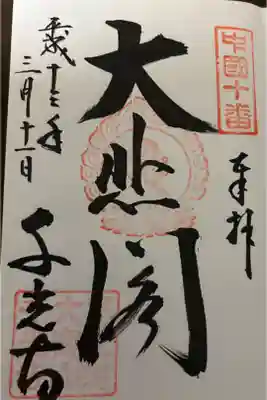 奉拝
中國十番
大悲閣
平成十三年
三月十一日
千光寺